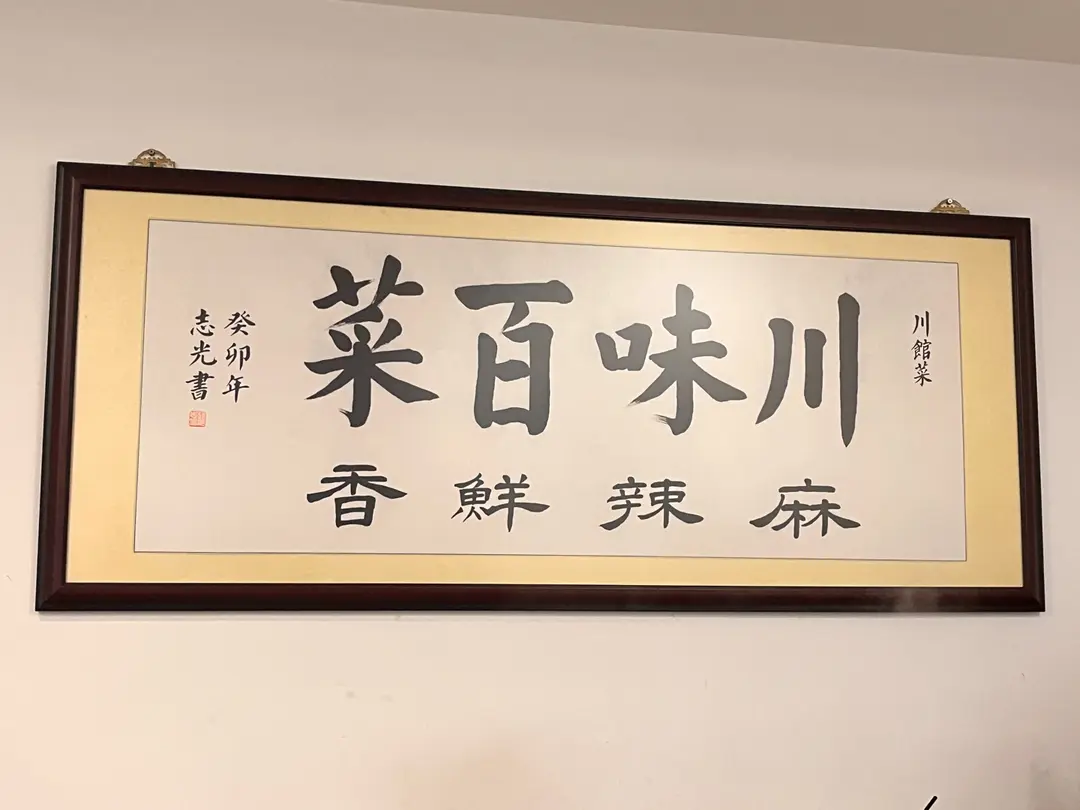 川館菜
川味百菜
麻辣鮮香
癸卯年
志光書